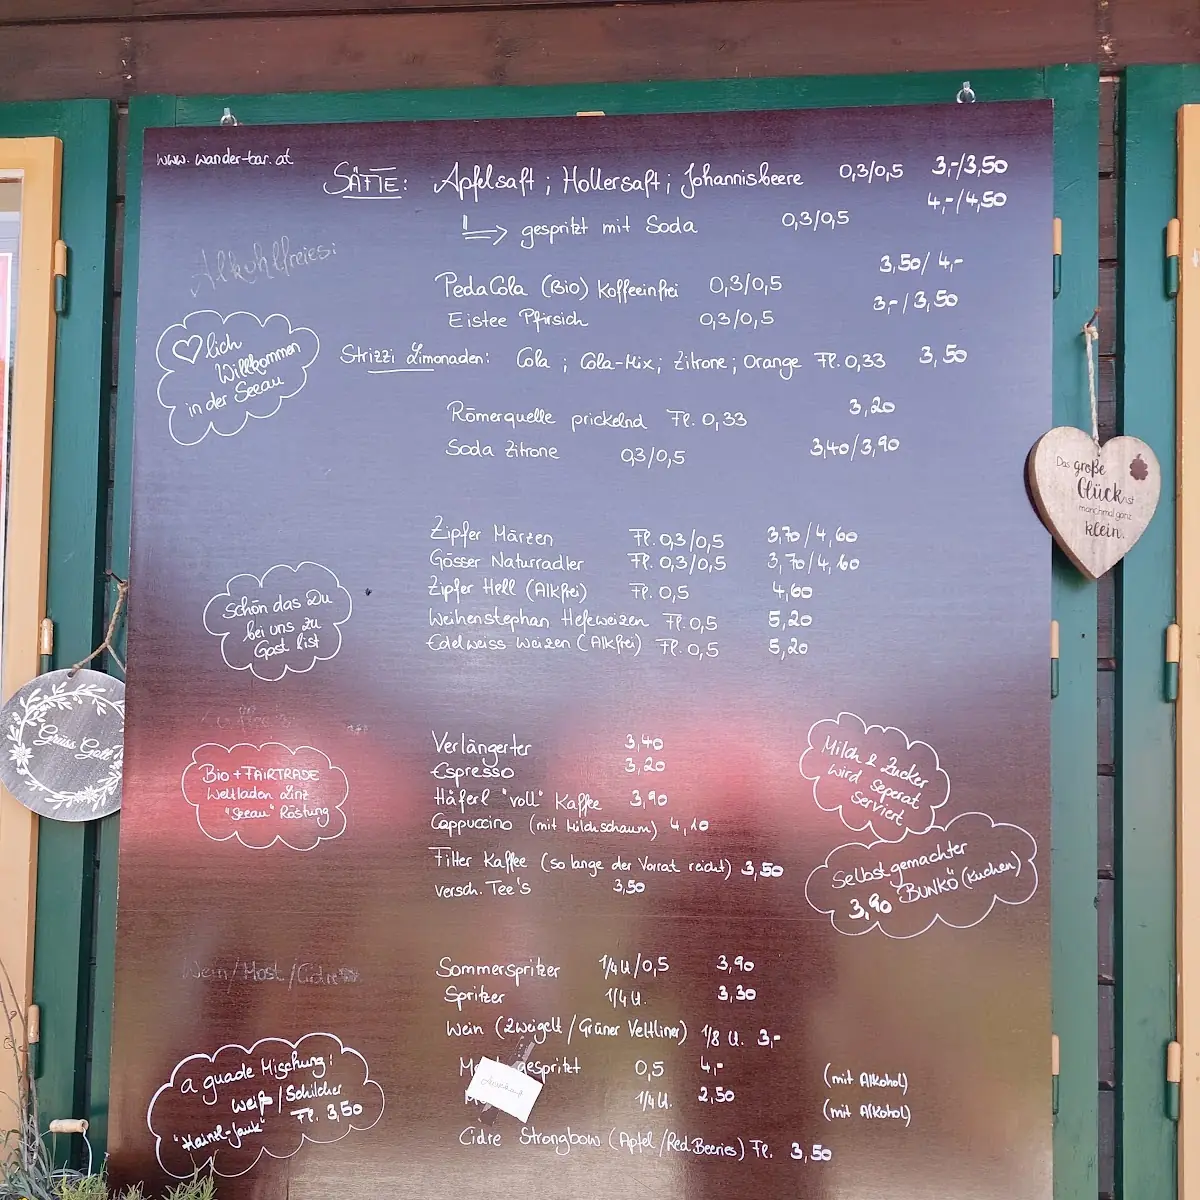 www. wander-bar.at
SÄFTE: Apfelsaft ; Hollersaft ; Johannisbeere 0,3/0,5 3,-/3,50
gespritzt mit Soda 0,3/0,5 4,-/4,50
Alkohlfreies:
PedaCola (Bio) Koffeeinfrei 0,3/0,5 3,50/ 4,-
Eistee Pfirsich 0,3/0,5 3,-/3,50
lich
Willkommen
in der Seeau
Strizzi Limonaden: Cola ; Cola-Mix ; Zitrone ; Orange Fl. 0,33 3,50
Römerquelle prickelnd Fl. 0,33 3,20
Soda Zitrone 0,3/0,5 3,40/3,90
Das große
Glück ist
manchmal ganz
klein.
Zipfer Märzen Fl. 0,3/0,5 3,70/4,60
Gösser Naturradler Fl. 0,3/0,5 3,70/4,60
Zipfer Hell (Alkfrei) Fl. 0,5 4,60
Weihenstephan Hefeweizen Fl. 0,5 5,20
Edelweiss Weizen (Alkfrei) Fl. 0,5 5,20
Schön das Du
bei uns zu
Gast bist
Grüss Gott
Verlängerter 3,40
Espresso 3,20
Häferl "voll" Kaffee 3,90
Cappuccino (mit Milchschaum) 4,10
Filter Kaffee (so lange der Vorrat reicht) 3,50
versch. Tee's 3,50
Bio + FAIRTRADE
Weltladen Linz
"Seeau" Röstung
Milch & Zucker
wird seperat
serviert
Selbstgemachter
3,90 BUNKÖ (Kuchen)
Wein/Most/Cidre
Sommerspritzer 1/4 U/0,5 3,90
Spritzer 1/4 U. 3,30
Wein (Zweigelt/Grüner Veltliner) 1/8 U. 3,-
gespritzt 0,5 4,- (mit Alkohol)
1/4 U. 2,50 (mit Alkohol)
Cidre Strongbow (Apfel/Red Beeries) Fl. 3,50
a guade Mischung:
weiß/Schilcher
"Haintl-Jauk" Fl. 3,50